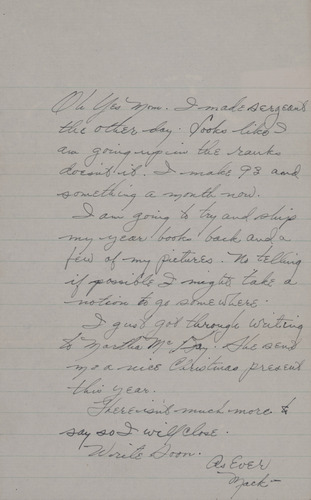 Oh Yes Mom. I make sergeant
the other day. Looks like I
am going up in the ranks
doesn't it. I make 93 and
something a month now.
I am going to try and ship
my year books back and a
few of my pictures. No telling
if possible I might take a
notion to go somewhere.
I just got through writing
to Martha Mc Day. She send
me a nice Christmas present
this year.
There isn't much more to
say so I will close.
Write Soon.
As Ever
Mack